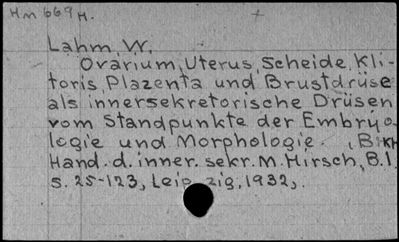 Hm 669 H.
Lahm, W.
Ovarium, Uterus, Scheide, Kli-
toris, Plazenta und Brustdrüse
als innersekretorische Drüsen
vom Standpunkte der Embryo-
logie und Morphologie.
Hand. d. inner. sekr. M. Hirsch, B. I.
S. 25-123, Leipzig, 1932,.